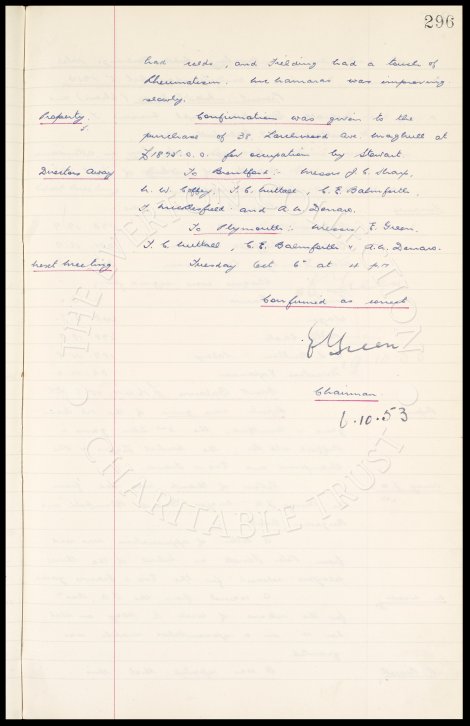 296
had colds, and Fielding had a touch of
Rheumatism. McNamara was improving
slowly.
Property. Confirmation was given to the
purchase of 38 Larchwood Ave. Maghull at
£1895.0.0. for occupation by Stewart.
Directors Away To Brentford:- Messrs J. C. Sharp,
N. W. Coffey, T. C. Nuttall, C. E. Balmforth,
T. Micklesfield and A. W. Denaro.
To Plymouth:- Messrs. E. Green.
T. C. Nuttall, C. E. Balmforth & A. W. Denaro.
Next Meeting Tuesday Oct 6th at 4 pm
Confirmed as correct
E Green
Chairman
6.10.53
THE EVERTON COLLECTION
CHARITABLE TRUST